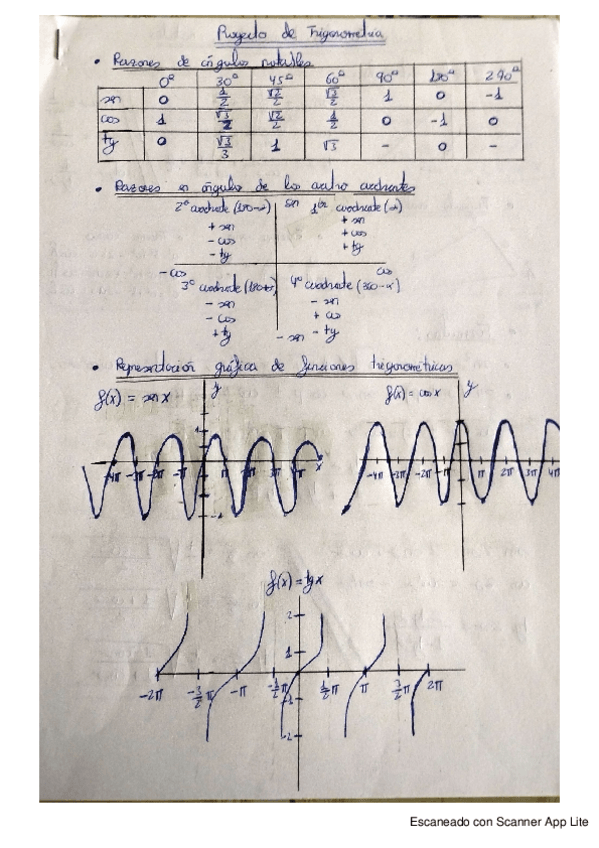 Proyecto de Trigonometría
• Razones de ángulos notables
0º 30º 45º 60º 90º 180º 270º
sen 0 1/2 √2/2 √3/2 1 0 -1
cos 1 √3/2 √2/2 1/2 0 -1 0
tg 0 √3/3 1 √3 - 0 -
• Razones en ángulos de los cuatro cuadrantes
2º cuadrante (180-α) sen 1er cuadrante (α)
+ sen + sen
- cos + cos
- tg + tg
- cos cos
3º cuadrante (180+α) 4º cuadrante (360-α)
- sen - sen
- cos + cos
+ tg - tg
- sen
• Representación gráfica de funciones trigonométricas
f(x) = sen x y f(x) = cos x y
1
-4π -3π -2π -π π 2π 3π 4π x -4π -3π -2π -π π 2π 3π 4π
-1
f(x) = tg x
2
1
-2π -3/2π -π -1/2π 1/2π π 3/2π 2π
-1
-2
Escaneado con Scanner App Lite